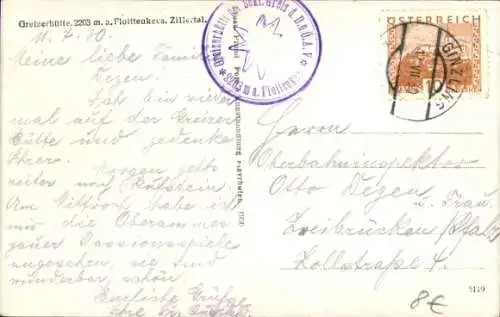 Greizerhütte, 2203 m. a. Floittenkees. Zillertal.
11. 7. 30.
Meine liebe Familie
Degen!
Sitz ein wieder
mal auf der Greizer
Hütte und gedenke
Ihrer.
Morgen gehts
weiter
Am Mittwoch habe ich
mir die Oberammer-
gauer Passionsspiele
angesehen, sie sind
wunderbar schön.
Herzliche Grüße
Ihr
Greizerhütte der Sekt. Greiz d. D. u. Ö. A. V.
2203 m a. Floittenkees
ÖSTERREICH
GINZLING
Herrn
Oberbahninspektor
Otto Degen
u. Frau
Zweibrücken (Pfalz)
Zollstraße 4.
5140
8€